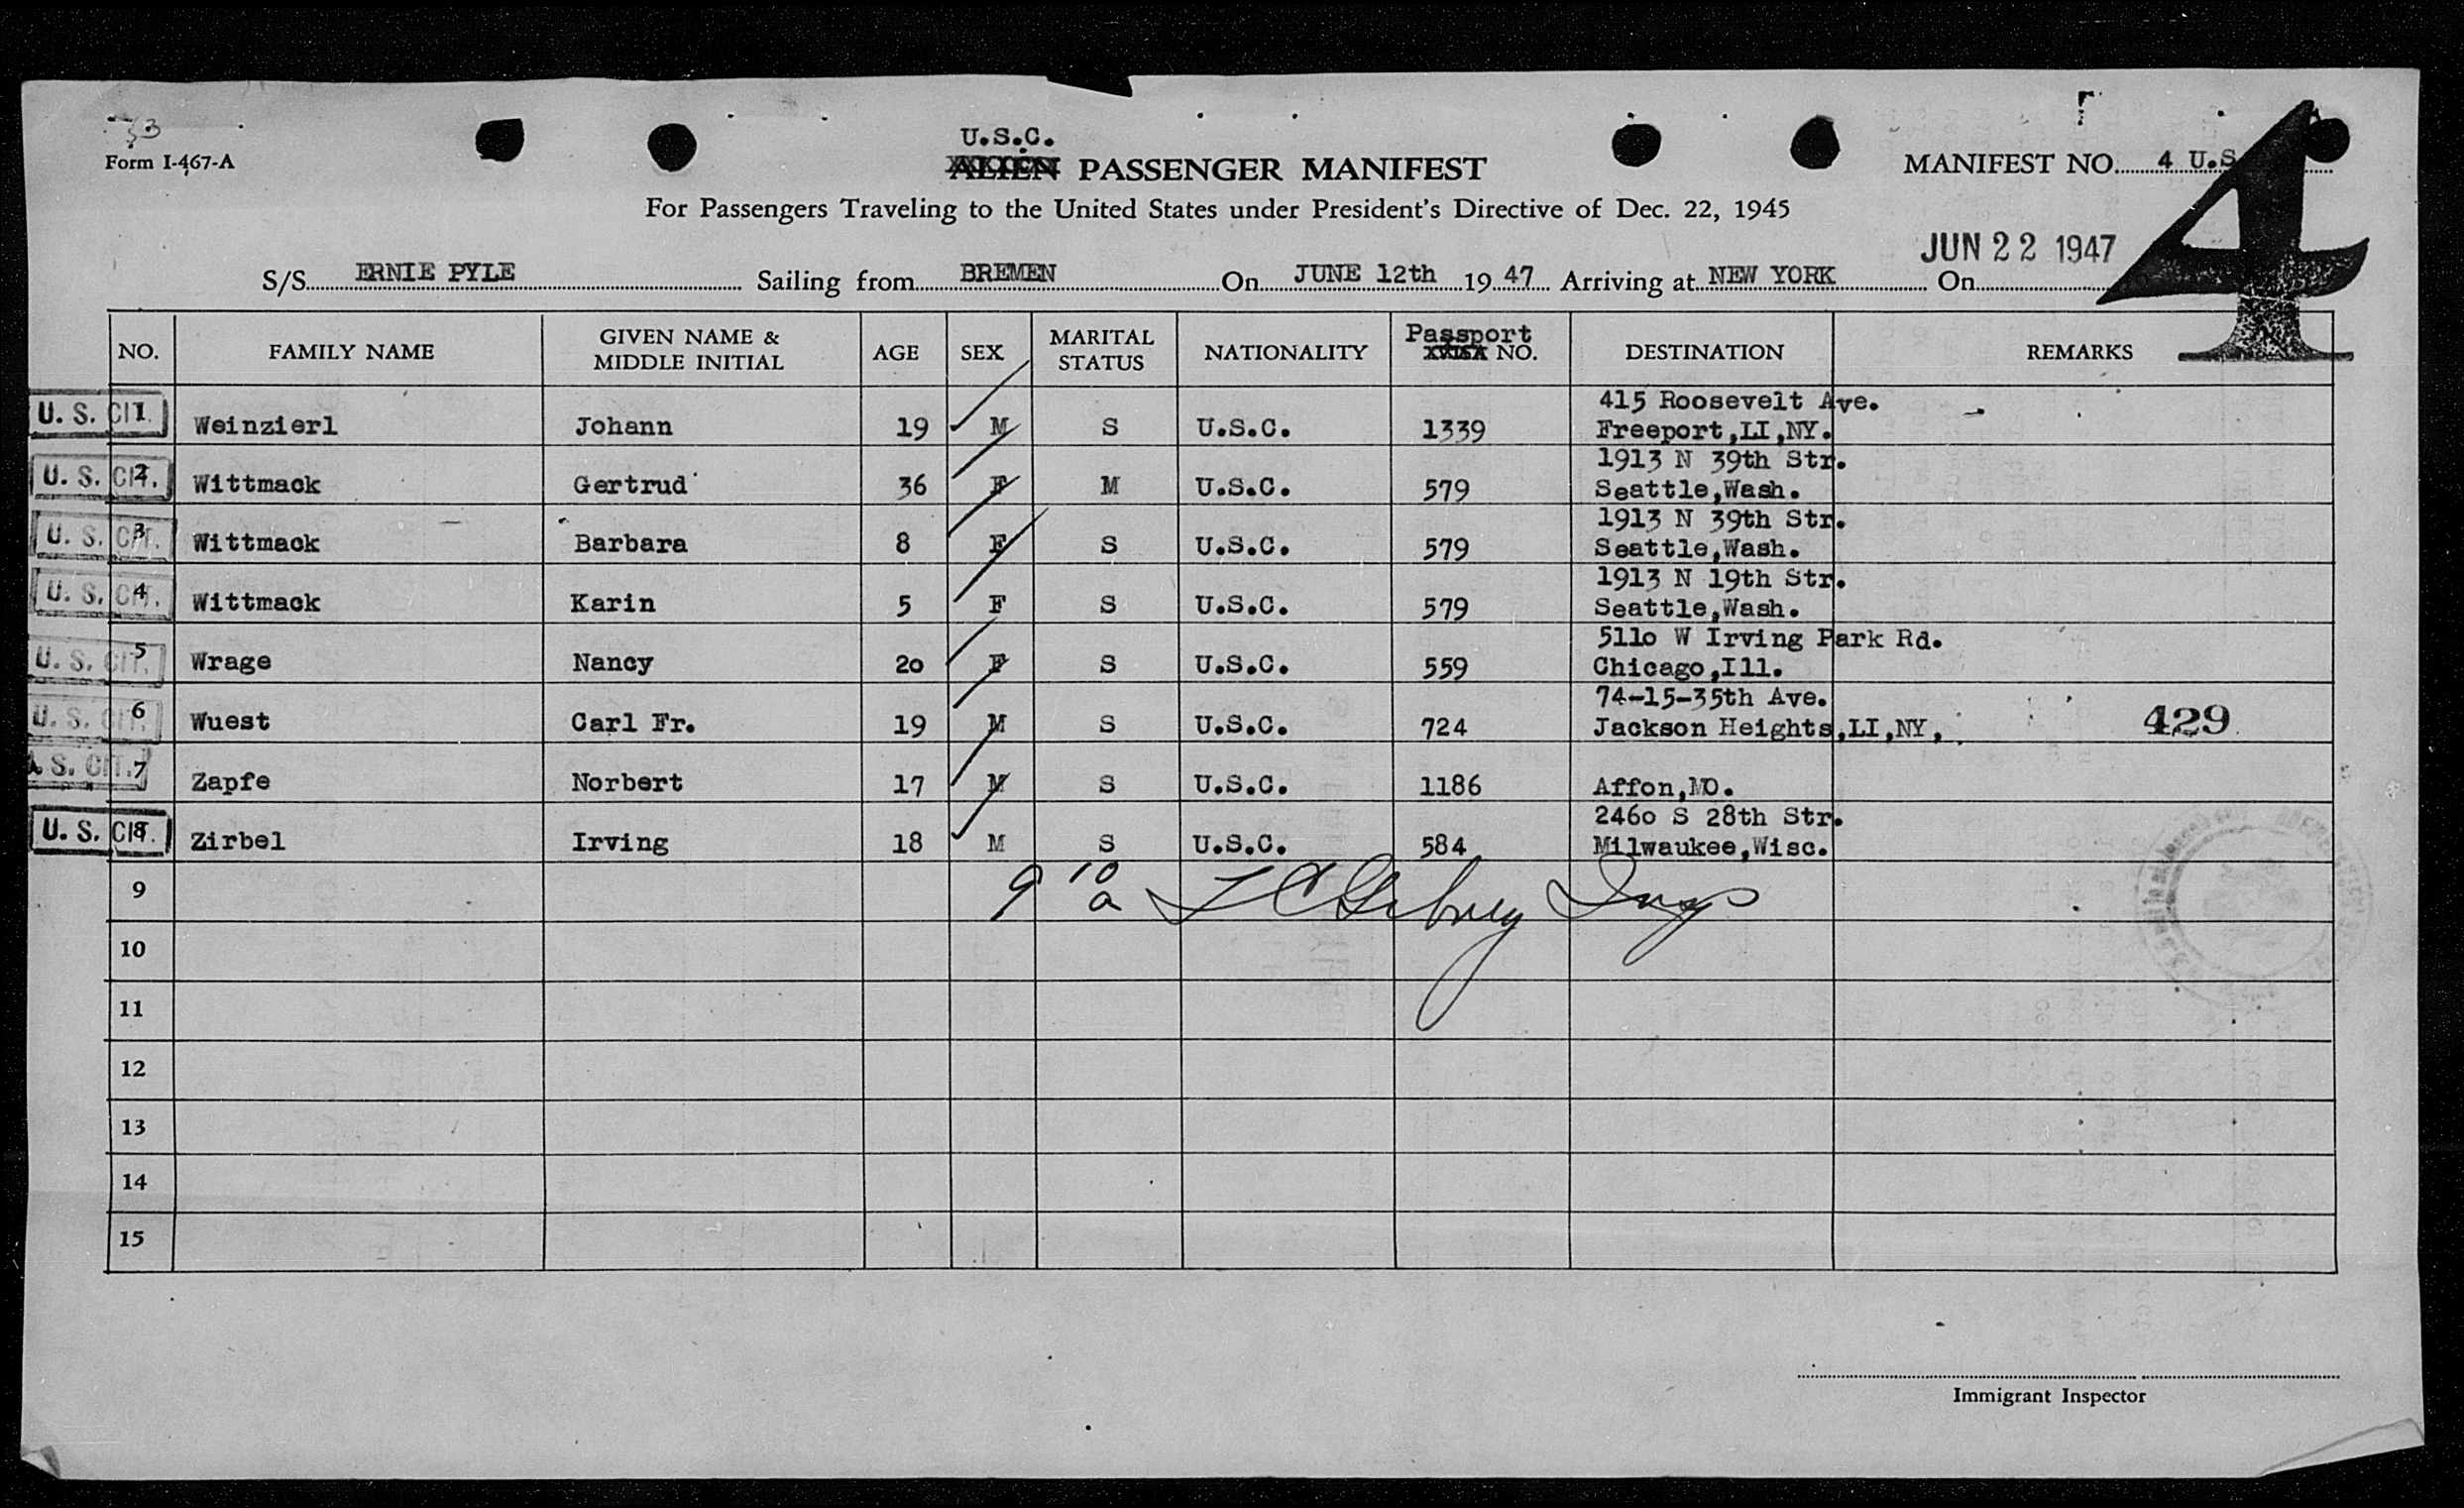 33
Form I-467-A
U.S.C.
ALIEN PASSENGER MANIFEST
MANIFEST NO. 4 U.S.
4
For Passengers Traveling to the United States under President's Directive of Dec. 22, 1945
JUN 22 1947
S/S ERNIE PYLE Sailing from BREMEN On JUNE 12th 19 47 Arriving at NEW YORK On
NO. FAMILY NAME GIVEN NAME & MIDDLE INITIAL AGE SEX MARITAL STATUS NATIONALITY Passport VISA NO. DESTINATION REMARKS
415 Roosevelt Ave.
U. S. CIT. 1 Weinzierl Johann 19 M S U.S.C. 1339 Freeport,LI,NY.
1913 N 39th Str.
U. S. CIT. 2 Wittmack Gertrud 36 F M U.S.C. 579 Seattle,Wash.
1913 N 39th Str.
U. S. CIT. 3 Wittmack Barbara 8 F S U.S.C. 579 Seattle,Wash.
1913 N 19th Str.
U. S. CIT. 4 Wittmack Karin 5 F S U.S.C. 579 Seattle,Wash.
5110 W Irving Park Rd.
U. S. CIT. 5 Wrage Nancy 20 F S U.S.C. 559 Chicago,Ill.
74-15-35th Ave.
U. S. CIT. 6 Wuest Carl Fr. 19 M S U.S.C. 724 Jackson Heights,LI,NY, 429
U. S. CIT. 7 Zapfe Norbert 17 M S U.S.C. 1186 Affon,MO.
2460 S 28th Str.
U. S. CIT. 8 Zirbel Irving 18 M S U.S.C. 584 Milwaukee,Wisc.
9 9 10 a
10
11
12
13
14
15
Immigrant Inspector